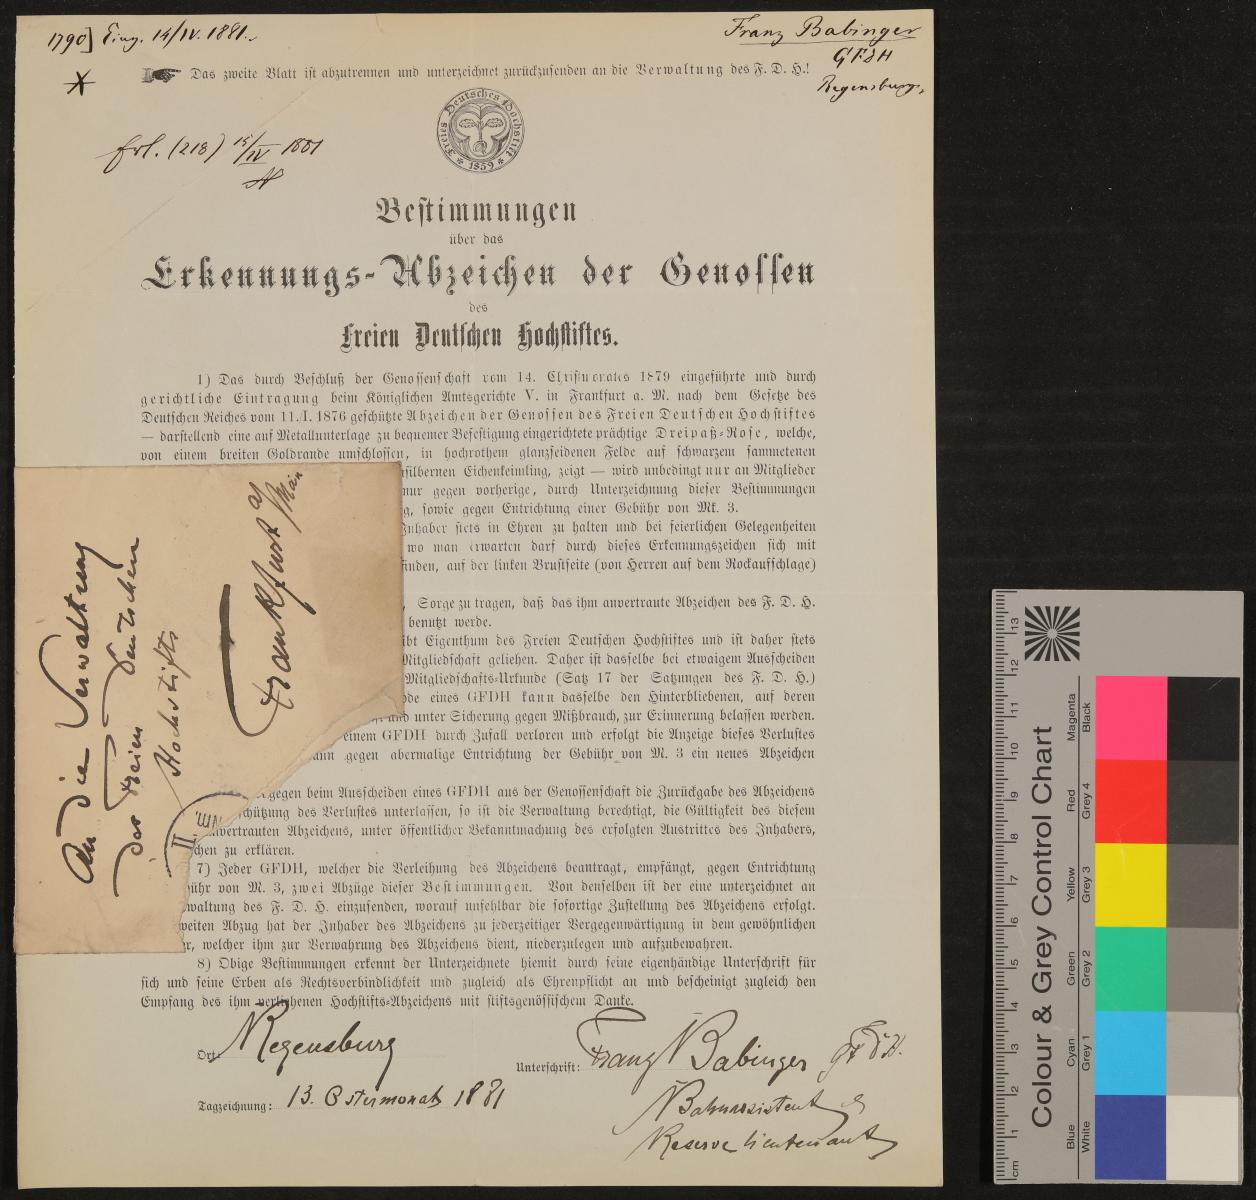 1790] Eing. 14/IV. 1881.
Franz Babinger
GFDH
Regensburg.
Das zweite Blatt ist abzutrennen und unterzeichnet zurückzusenden an die Verwaltung des F. D. H.!
Erl. (218) 15/IV 1881
Freies Deutsches Hochstift * 1859 *
Bestimmungen
über das
Erkennungs-Abzeichen der Genossen
des
Freien Deutschen Hochstiftes.
1) Das durch Beschluß der Genossenschaft vom 14. Christmonates 1879 eingeführte und durch
gerichtliche Eintragung beim Königlichen Amtsgerichte V. in Frankfurt a. M. nach dem Gesetze des
Deutschen Reiches vom 11./I. 1876 geschützte Abzeichen der Genossen des Freien Deutschen Hochstiftes
— darstellend eine auf Metallunterlage zu bequemer Befestigung eingerichtete prächtige Dreipaß-Rose, welche,
von einem breiten Goldrande umschlossen, in hochrothem glanzseidenen Felde auf schwarzem sammetenen
silbernen Eichenkeimling, zeigt — wird unbedingt nur an Mitglieder
nur gegen vorherige, durch Unterzeichnung dieser Bestimmungen
g, sowie gegen Entrichtung einer Gebühr von Mk. 3.
Inhaber stets in Ehren zu halten und bei feierlichen Gelegenheiten
wo man erwarten darf durch dieses Erkennungszeichen sich mit
finden, auf der linken Brustseite (von Herren auf dem Rockaufschlage)
, Sorge zu tragen, daß das ihm anvertraute Abzeichen des F. D. H.
benutzt werde.
ibt Eigenthum des Freien Deutschen Hochstiftes und ist daher stets
Mitgliedschaft geliehen. Daher ist dasselbe bei etwaigem Ausscheiden
Mitgliedschafts-Urkunde (Satz 17 der Satzungen des F. D. H.)
de eines GFDH kann dasselbe den Hinterbliebenen, auf deren
und unter Sicherung gegen Mißbrauch, zur Erinnerung belassen werden.
einem GFDH durch Zufall verloren und erfolgt die Anzeige dieses Verlustes
ann gegen abermalige Entrichtung der Gebühr von M. 3 ein neues Abzeichen
gegen beim Ausscheiden eines GFDH aus der Genossenschaft die Zurückgabe des Abzeichens
schützung des Verlustes unterlassen, so ist die Verwaltung berechtigt, die Gültigkeit des diesem
anvertrauten Abzeichens, unter öffentlicher Bekanntmachung des erfolgten Austrittes des Inhabers,
chen zu erklären.
7) Jeder GFDH, welcher die Verleihung des Abzeichens beantragt, empfängt, gegen Entrichtung
ühr von M. 3, zwei Abzüge dieser Bestimmungen. Von denselben ist der eine unterzeichnet an
waltung des F. D. H. einzusenden, worauf unfehlbar die sofortige Zustellung des Abzeichens erfolgt.
weiten Abzug hat der Inhaber des Abzeichens zu jederzeitiger Vergegenwärtigung in dem gewöhnlichen
r, welcher ihm zur Verwahrung des Abzeichens dient, niederzulegen und aufzubewahren.
8) Obige Bestimmungen erkennt der Unterzeichnete hiemit durch seine eigenhändige Unterschrift für
sich und seine Erben als Rechtsverbindlichkeit und zugleich als Ehrenpflicht an und bescheinigt zugleich den
Empfang des ihm verliehenen Hochstifts-Abzeichens mit stiftsgenössischem Danke.
Ort: Regensburg
Unterschrift: Franz Babinger GFDH.
Tagzeichnung: 13. Ostermonats 1881
Bahnassistent &
Reservelieutenant
An die Verwaltung
des Freien Deutschen
Hochstifts
Frankfurt a/Main
II. Nm.
Colour & Grey Control Chart
Magenta
Black
Red
Grey 4
Yellow
Grey 3
Green
Grey 2
Cyan
Grey 1
Blue
White
cm 1 2 3 4 5 6 7 8 9 10 11 12 13